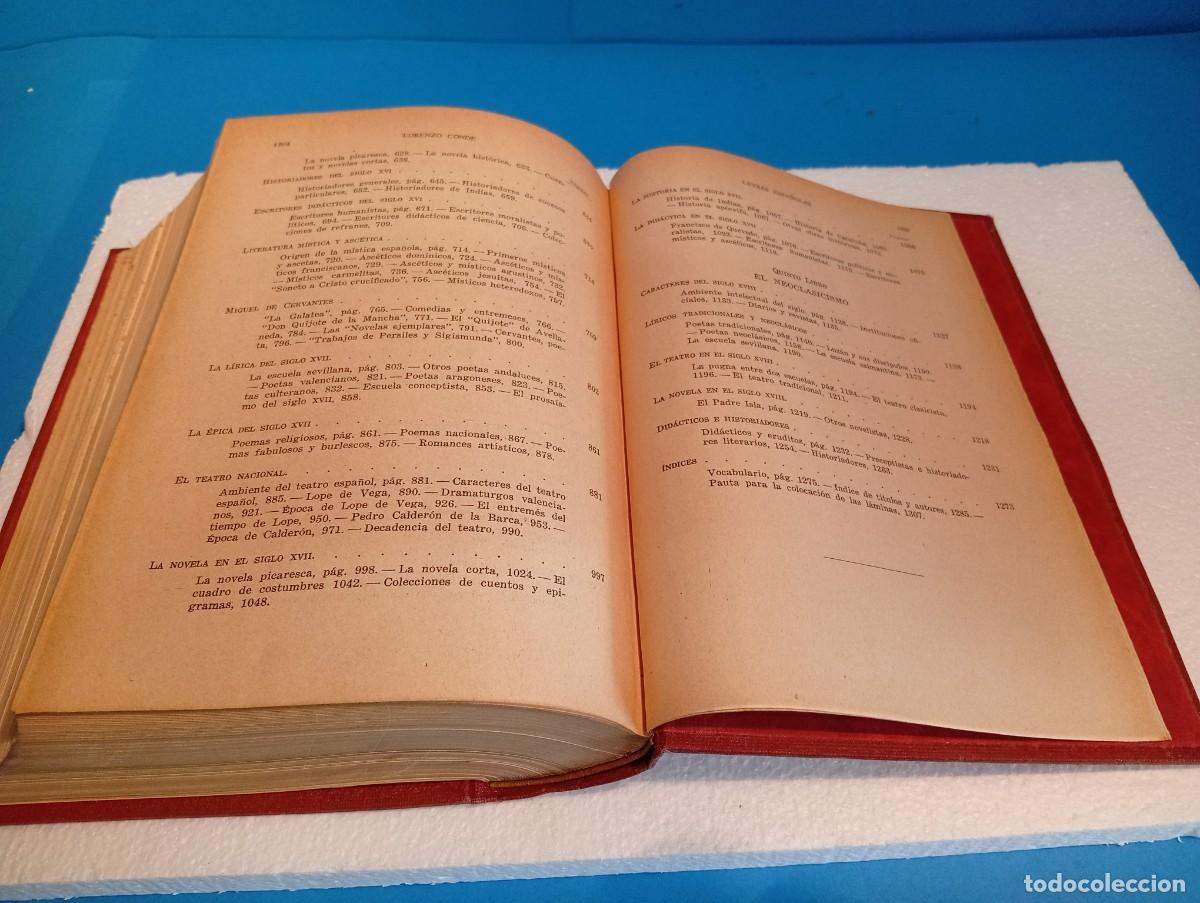 LORENZO CONDE
La novela picaresca, 629. — La novela histórica, 633. — Cuentos y novelas cortas, 638.
HISTORIADORES DEL SIGLO XVI
Historiadores generales, pág. 645. — Historiadores de sucesos
particulares, 652. — Historiadores de Indias, 659.
ESCRITORES DIDÁCTICOS DEL SIGLO XVI
Escritores humanistas, pág. 671. — Escritores moralistas y po-
líticos, 694. — Escritores didácticos de ciencia, 706. — Colec-
ciones de refranes, 709.
LITERATURA MÍSTICA Y ASCÉTICA . . . 714
Origen de la mística española, pág. 714. — Primeros místicos
y ascetas, 720. — Ascéticos dominicos, 724. — Ascéticos y mís-
ticos franciscanos, 729. — Ascéticos y místicos agustinos, 732.
— Místicos carmelitas, 736. — Ascéticos jesuitas, 754. — El
"Soneto a Cristo crucificado", 756. — Místicos heterodoxos, 757.
MIGUEL DE CERVANTES
"La Galatea", pág. 765. — Comedias y entremeses, 766. —
"Don Quijote de la Mancha", 771. — El "Quijote" de Avella-
neda, 784. — Las "Novelas ejemplares", 791. — Cervantes, poe-
ta, 796. — "Trabajos de Persiles y Sigismunda", 800.
LA LÍRICA DEL SIGLO XVII. . . . 802
La escuela sevillana, pág. 803. — Otros poetas andaluces, 815.
— Poetas valencianos, 821. — Poetas aragoneses, 823. — Poe-
tas culteranos. 832. — Escuela conceptista, 853. — El prosaís-
mo del siglo XVII, 858.
LA ÉPICA DEL SIGLO XVII . . . 861
Poemas religiosos, pág. 861. — Poemas nacionales, 867. — Poe-
mas fabulosos y burlescos, 875. — Romances artísticos, 878.
EL TEATRO NACIONAL. . . . 881
Ambiente del teatro español, pág. 881. — Caracteres del teatro
español, 885. — Lope de Vega, 890. — Dramaturgos valencia-
nos, 921. — Época de Lope de Vega, 926. — El entremés del
tiempo de Lope, 950. — Pedro Calderón de la Barca, 953. —
Época de Calderón, 971. — Decadencia del teatro, 990.
LA NOVELA EN EL SIGLO XVII. . . . 997
La novela picaresca, pág. 998. — La novela corta, 1024. — El
cuadro de costumbres 1042. — Colecciones de cuentos y epi-
gramas, 1048.
LETRAS ESPAÑOLAS
LA HISTORIA EN EL SIGLO XVII
Historia de Indias, pág. 1057. — Historia de Cataluña,
— Historia apócrifa, 1067. — Otras obras históricas, 1072.
LA DIDÁCTICA EN EL SIGLO XVII
Francisco de Quevedo, pág. 1076. — Escritores políticos y mo-
ralistas, 1092. — Escritores humanistas, 1113. — Escritores
místicos y ascéticos, 1118.
QUINTO LIBRO
EL NEOCLASICISMO
CARACTERES DEL SIGLO XVIII . . . 1127
Ambiente intelectual del siglo, pág. 1128. — Instituciones ofi-
ciales, 1133. — Diarios y revistas, 1135.
LÍRICOS TRADICIONALES Y NEOCLÁSICOS . . . 1138
Poetas tradicionales, pág. 1140. — Luzán y sus discípulos, 1150.
— Poetas neoclásicos, 1158. — La escuela salmantina, 1173. —
La escuela sevillana, 1190.
EL TEATRO EN EL SIGLO XVIII . . . 1194
La pugna entre dos escuelas, pág. 1194. — El teatro clasicista,
1196. — El teatro tradicional, 1211.
LA NOVELA EN EL SIGLO XVIII. . . . 1218
El Padre Isla, pág. 1219. — Otros novelistas, 1228.
DIDÁCTICOS E HISTORIADORES . . . 1231
Didácticos y eruditos, pág. 1232. — Preceptistas e historiado-
res literarios, 1254. — Historiadores, 1263.
ÍNDICES . . . 1273
Vocabulario, pág. 1275. — Índice de títulos y autores, 1285. —
Pauta para la colocación de las láminas, 1307.
todocoleccion